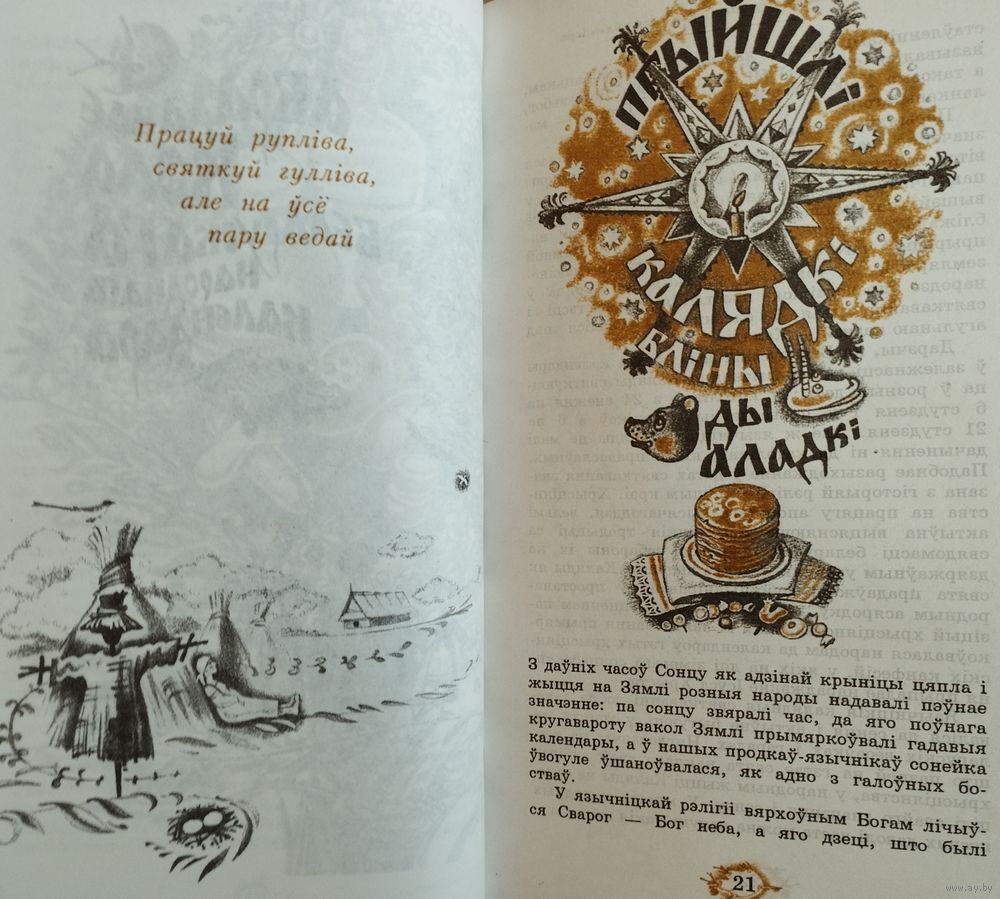 Працуй рупліва,
святкуй гулліва,
але на ўсё
пару ведай
ПРЫЙШЛІ
КАЛЯДКІ
БЛІНЫ
ДЫ
АЛАДКІ
З даўніх часоў Сонцу як адзінай крыніцы цяпла і
жыцця на Зямлі розныя народы надавалі пэўнае
значэнне: па сонцу звяралі час, да яго поўнага
кругавароту вакол Зямлі прымяркоўвалі гадавыя
календары, а ў нашых продкаў-язычнікаў сонейка
ўвогуле ўшаноўвалася, як адно з галоўных бо-
стваў.
У язычніцкай рэлігіі вярхоўным Богам лічыў-
ся Сварог — Бог неба, а яго дзеці, што былі
21
www.ay.by